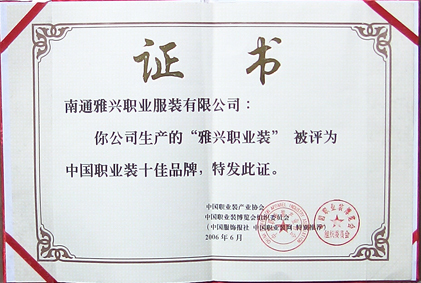 证书
南通雅兴职业服装有限公司：
你公司生产的“雅兴职业装” 被评为
中国职业装十佳品牌，特发此证。
中国职业装产业协会
中国职业装博览会组织委员会
（中国服饰报社 中国职业装网：特别推荐）
2006年6月